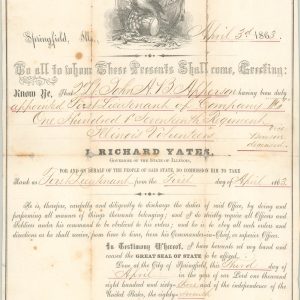 Springfield, Ills., April 3d 1863.
To all to whom These Presents Shall come, Greeting:
Know Ye, That John A. B. having been duly
appointed First Lieutenant of Company
One Hundred & Seventeenth Regiment
Illinois Volunteers
I, RICHARD YATES,
GOVERNOR OF THE STATE OF ILLINOIS,
FOR AND ON BEHALF OF THE PEOPLE OF SAID STATE, DO COMMISSION HIM TO TAKE
Rank as First Lieutenant from the First day of April 1863
He is, therefore, carefully and diligently to discharge the duties of said Office, by doing and
performing all manner of things thereunto belonging; and I do strictly require all Officers and
Soldiers under his command to be obedient to his orders; and he is to obey all such orders and
directions as he shall receive, from time to time, from his Commander-in-Chief, or superior Officer.
In Testimony Whereof, I have hereunto set my hand and
caused the GREAT SEAL OF STATE to be affixed.
Done at the City of Springfield, this Third day of
April in the year of our Lord one thousand
eight hundred and sixty three and of the Independence of the
United States, the eighty-seventh